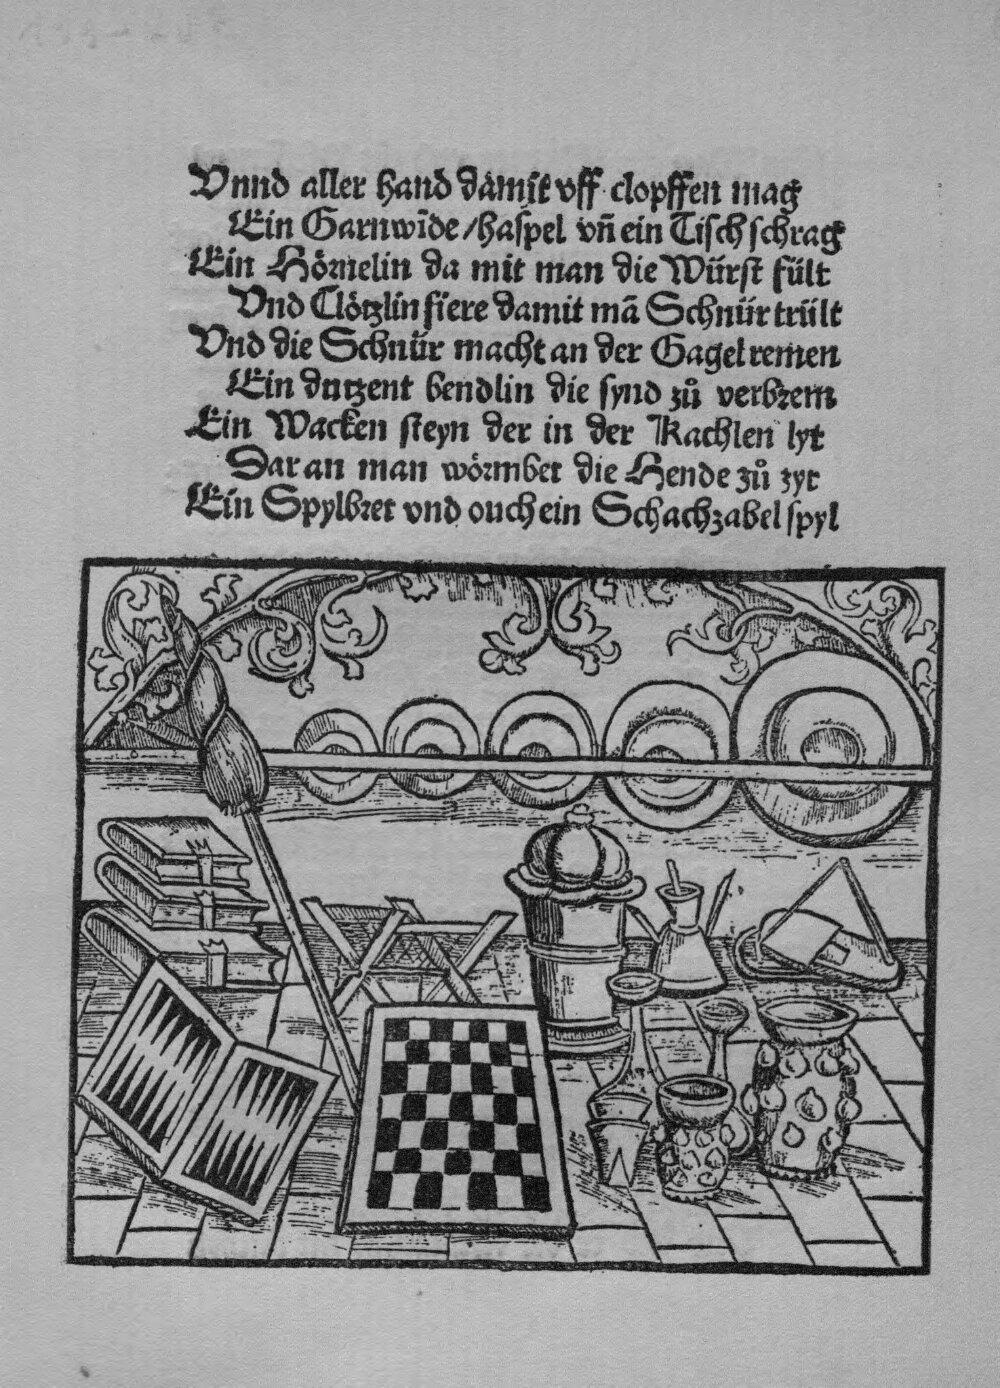 Vnnd aller hand dåmit vff clopffen mag
Ein Garnwĩde / haspel vñ ein Tisch schrag
Ein Hörnelin da mit man die Würst fült
Vnd Clötzlin fiere damit mã Schnür trült
Vnd die Schnür macht an der Gagel remen
Ein dutzent bendlin die synd zů verbrem
Ein Wacken steyn der in der Kachlen lyt
Dar an man wörmbet die Hende zů zyt
Ein Spylbret vnd ouch ein Schachzabel spyl